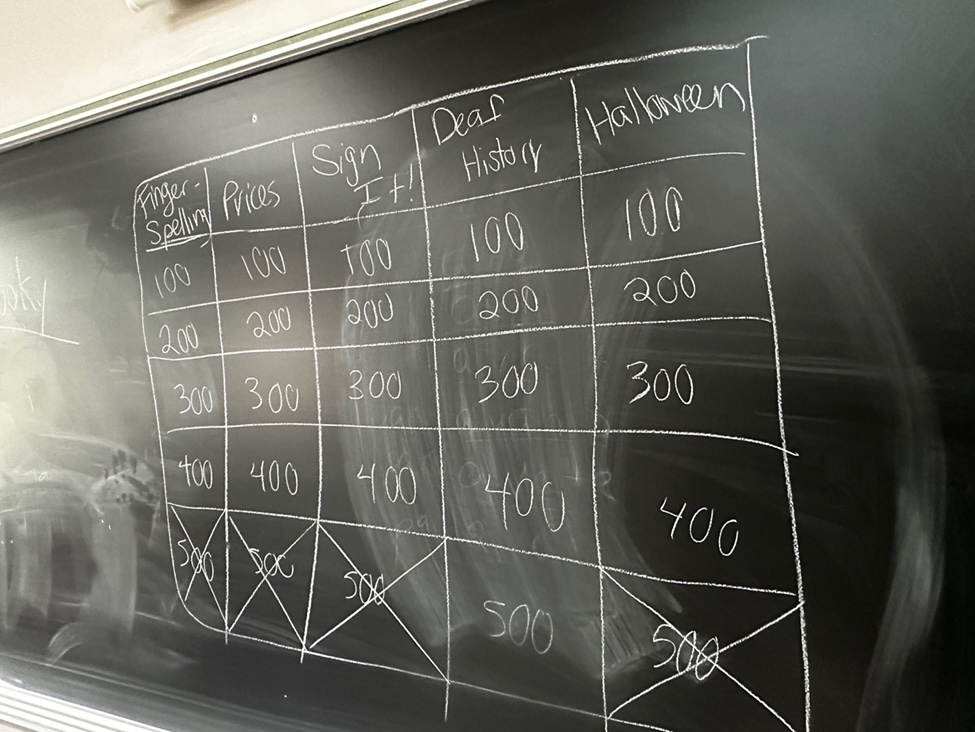 Finger-
Spelling
Prices
Sign
It!
Deaf
History
Halloween
100 100 100 100 100
200 200 200 200 200
300 300 300 300 300
400 400 400 400 400
500 500 500 500 500